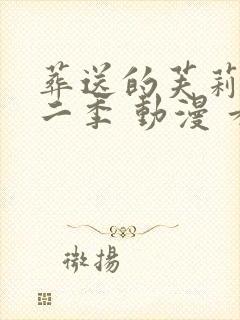 葬送的芙莉
二季 動漫
微揚